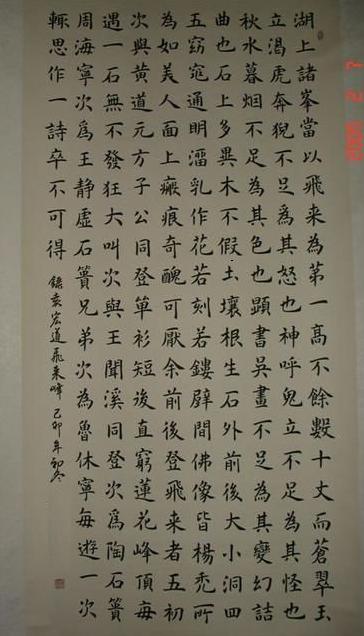 湖上諸峯當以飛来為第一高不餘數十丈而蒼翠玉
立渴虎奔猊不足為其怒也神呼鬼立不足為其怪也
秋水暮烟不足為其色也顛書吳畫不足為其變幻詰
曲也石上多異木不假土壤根生石外前後大小洞四
五窈窕通明溜乳作花若刻若鏤壁間佛像皆楊禿所
為如美人面上瘢痕奇醜可厭余前後登飛来者五初
次與黄道元方子公同登單衫短後直窮蓮花峰頂每
遇一石無不發狂大叫次與王聞溪同登次為陶石簣
周海寧次為王静虛石簣兄弟次為魯休寧每遊一次
輒思作一詩卒不可得
錄袁宏道飛来峰 己卯年初冬